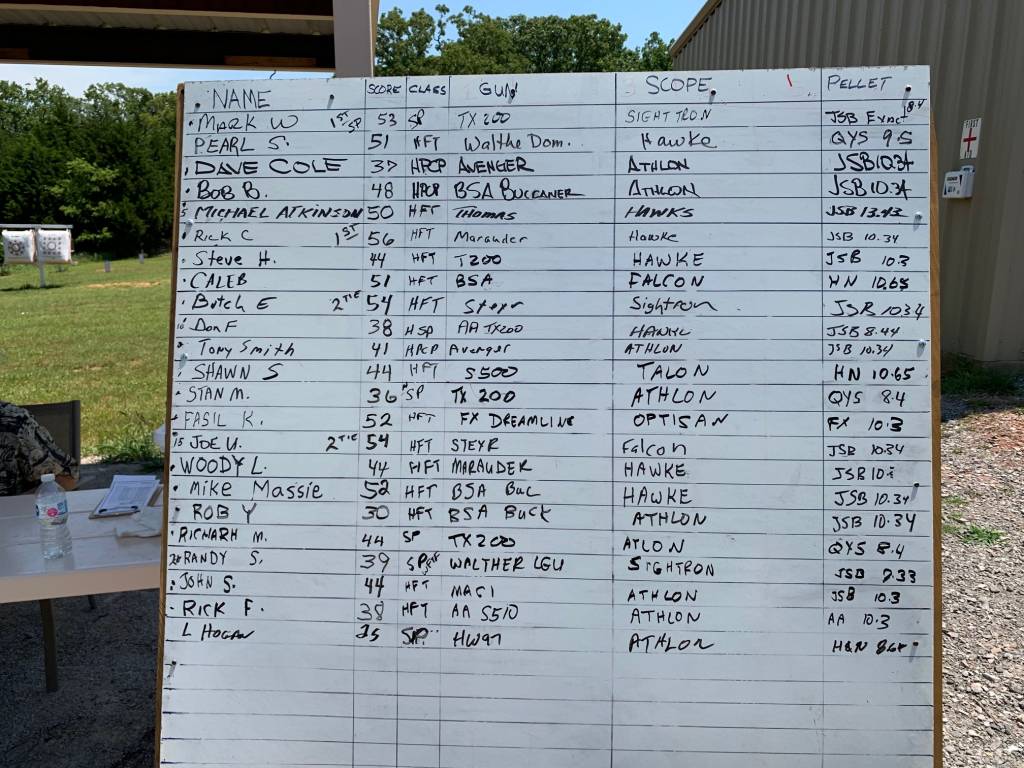 NAME SCORE CLASS GUN SCOPE PELLET
Mark W 1ST SP 53 SP TX200 SIGHTTRON JSB Exact 8.4
PEARL S. 51 HFT Walthe Dom. Hawke QYS 9.5
DAVE COLE 37 HPCP AVENGER ATHLON JSB 10.34
BOB B. 48 HPCP BSA BUCCANER ATHLON JSB 10.34
5 MICHAEL ATKINSON 50 HFT THOMAS HAWKS JSB 13.43
Rick C 1ST 56 HFT Marauder Hawke JSB 10.34
Steve H. 44 HFT T200 HAWKE JSB 10.3
CALEB 51 HFT BSA FALCON HN 10.65
Butch E 2TIE 54 HFT Steyr Sightron JSB 10.34
10 Don F 38 HSP AA TX200 JSB 8.44
Tony Smith 41 HPCP Avenger ATHLON JSB 10.34
SHAWN S 44 HFT S500 TALON HN 10.65
STAN M. 36 SP TX 200 ATHLON QYS 8.4
FASIL K. 52 HFT FX DREAMLINE OPTISAN FX 10.3
15 JOE U. 2TIE 54 HFT STEYR Falcon JSB 10.34
WOODY L. 44 HFT MARAUDER HAWKE JSB
Mike Massie 52 HFT BSA BUC HAWKE JSB 10.34
ROB Y 30 HFT BSA BUCK ATHLON JSB 10.34
RICHARH M. 44 SP TX200 ATLON QYS 8.4
20 RANDY S. 39 WALTHER LGU SIGHTRON JSB 7.33
JOHN S. 44 HFT MAC1 ATHLON JSB 10.3
RICK F. 38 HFT AA S510 ATHLON AA 10.3
L HOGAN 25 SP HW97 ATHLON H&N
FIRST